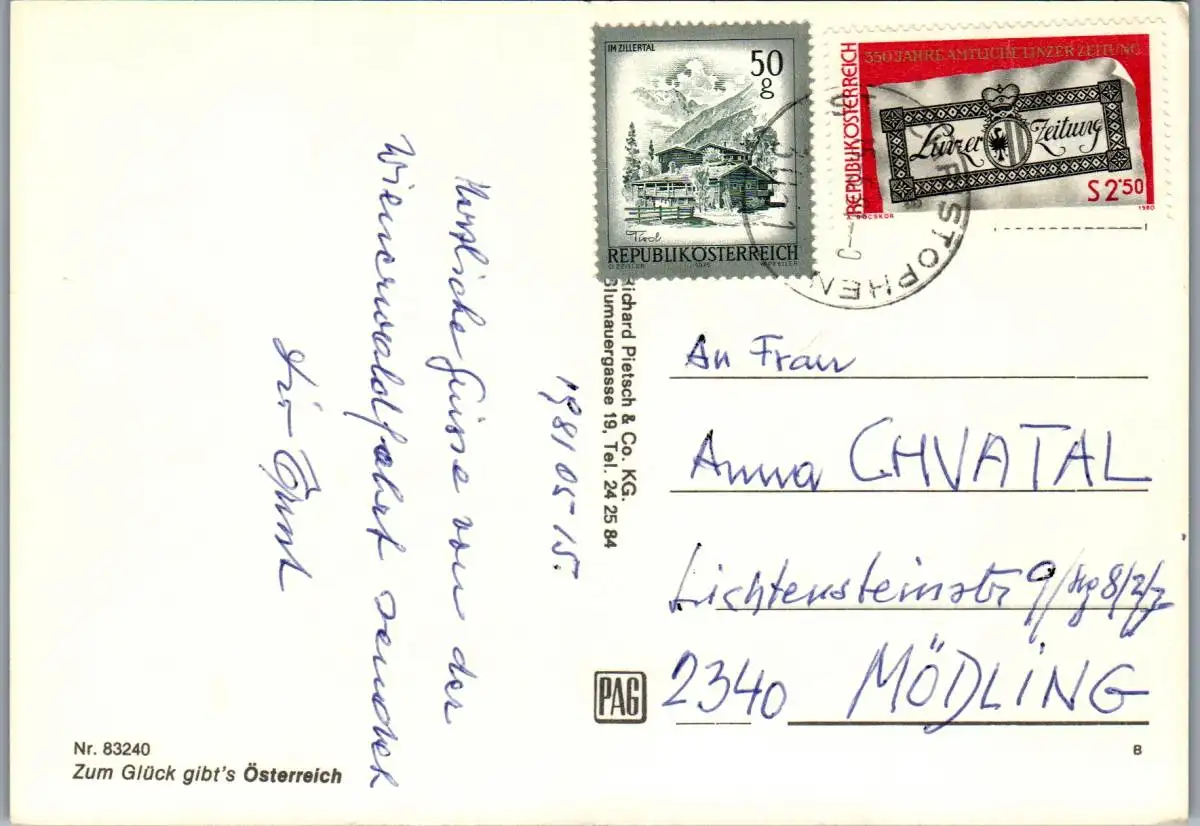 IM ZILLERTAL
50
g
Tirol
REPUBLIK ÖSTERREICH
350 JAHRE AMTLICHE LINZER ZEITUNG
REPUBLIK ÖSTERREICH
Linzer Zeitung
S 2·50
1980
STOPHEN
1981 05 15.
Herzliche Grüsse von der
Wienerwaldfahrt sendet
Dir Ernst
Richard Pietsch & Co. KG.
Blumauergasse 19, Tel. 24 25 84
An Frau
Anna CHVATAL
Lichtensteinstr 9/Stg 8/2/7
2340 MÖDLING
PAG
Nr. 83240
Zum Glück gibt's Österreich
B